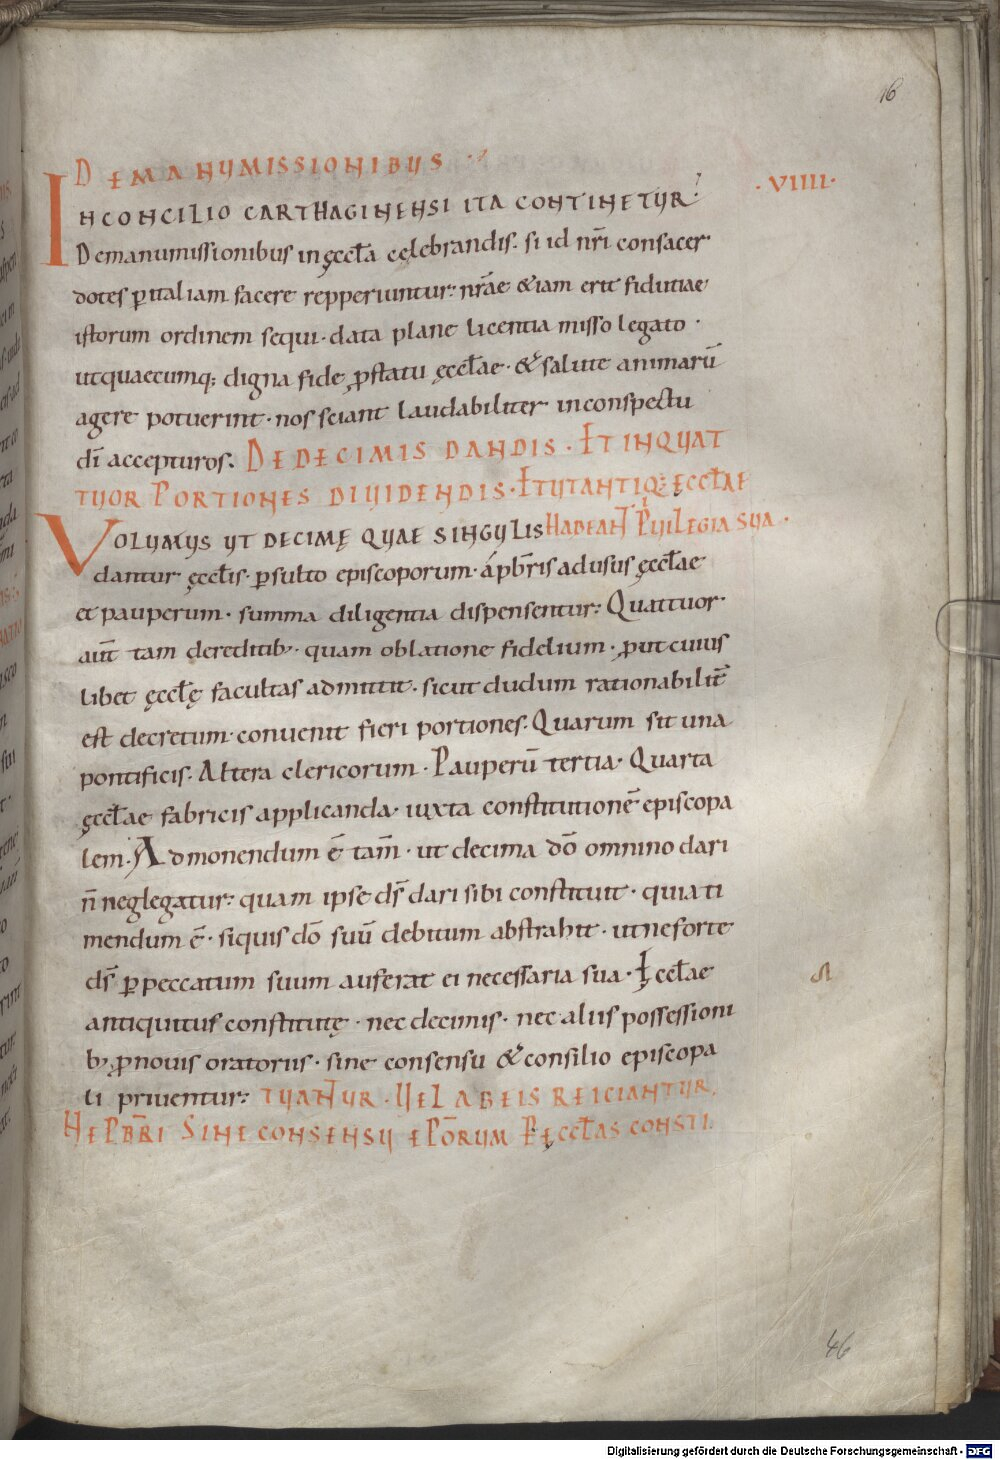 16
DE MANUMISSIONIBUS
·VIIII·
IN CONCILIO CARTHAGINENSI ITA CONTINETUR:
Demanumissionibus in ęccła celebrandis. si id nr̄i consacer
dotes p̱ italiam facere repperiuntur: nr̄ae &iam erit fidutiae
istorum ordinem sequi· data plane licentia misso legato·
ut quaecumq; digna fide ꝓ statu ęccłae· & salute animarū
agere potuerint· nos sciant laudabiliter inconspectu
dī accepturos. DE DECIMIS DANDIS· ET IN QUAT
TUOR PORTIONES DIVIDENDIS· ET UT ANTIQ: ĘCCŁAE
VOLUMUS UT DECIMĘ QUAE SINGULIS HABEANT PVILEGIA SUA·
dantur ęccłis· p̱ sulto episcoporum· a pb̄ris ad usus ęccłae
et pauperum· summa diligentia dispensentur: Quattuor·
aut̄ tam de reditib; quam oblatione fidelium· ꝓut cuius
libet ęccłę facultas admittit· sicut dudum rationabilit̄
est decretum· convenit fieri portiones. Quarum sit una
pontificis. Altera clericorum· Pauperū tertia· Quarta
ęccłae fabricis applicanda· iuxta constitutionē episcopa
lem. Admonendum ē tam̄· ut decima dō omnino dari
n̄ neglegatur: quam ipse ds̄ dari sibi constituit· quia ti
mendum ē· si quis dō suū debitum abstrahit· ut ne forte
ds̄ p̱ peccatum suum auferat ei necessaria sua· Ęccłae
antiquitus constitutę· nec decimis· nec aliis possessioni
b; ꝓ novis oratoriis· sine consensu & consilio episcopa
li priventur: TUANTUR· VEL AB EIS REICIANTUR.
NE PB̄RI SINE CONSENSU EPŌRUM P ĘCCŁAS CONSTI.
46
Digitalisierung gefördert durch die Deutsche Forschungsgemeinschaft - DFG